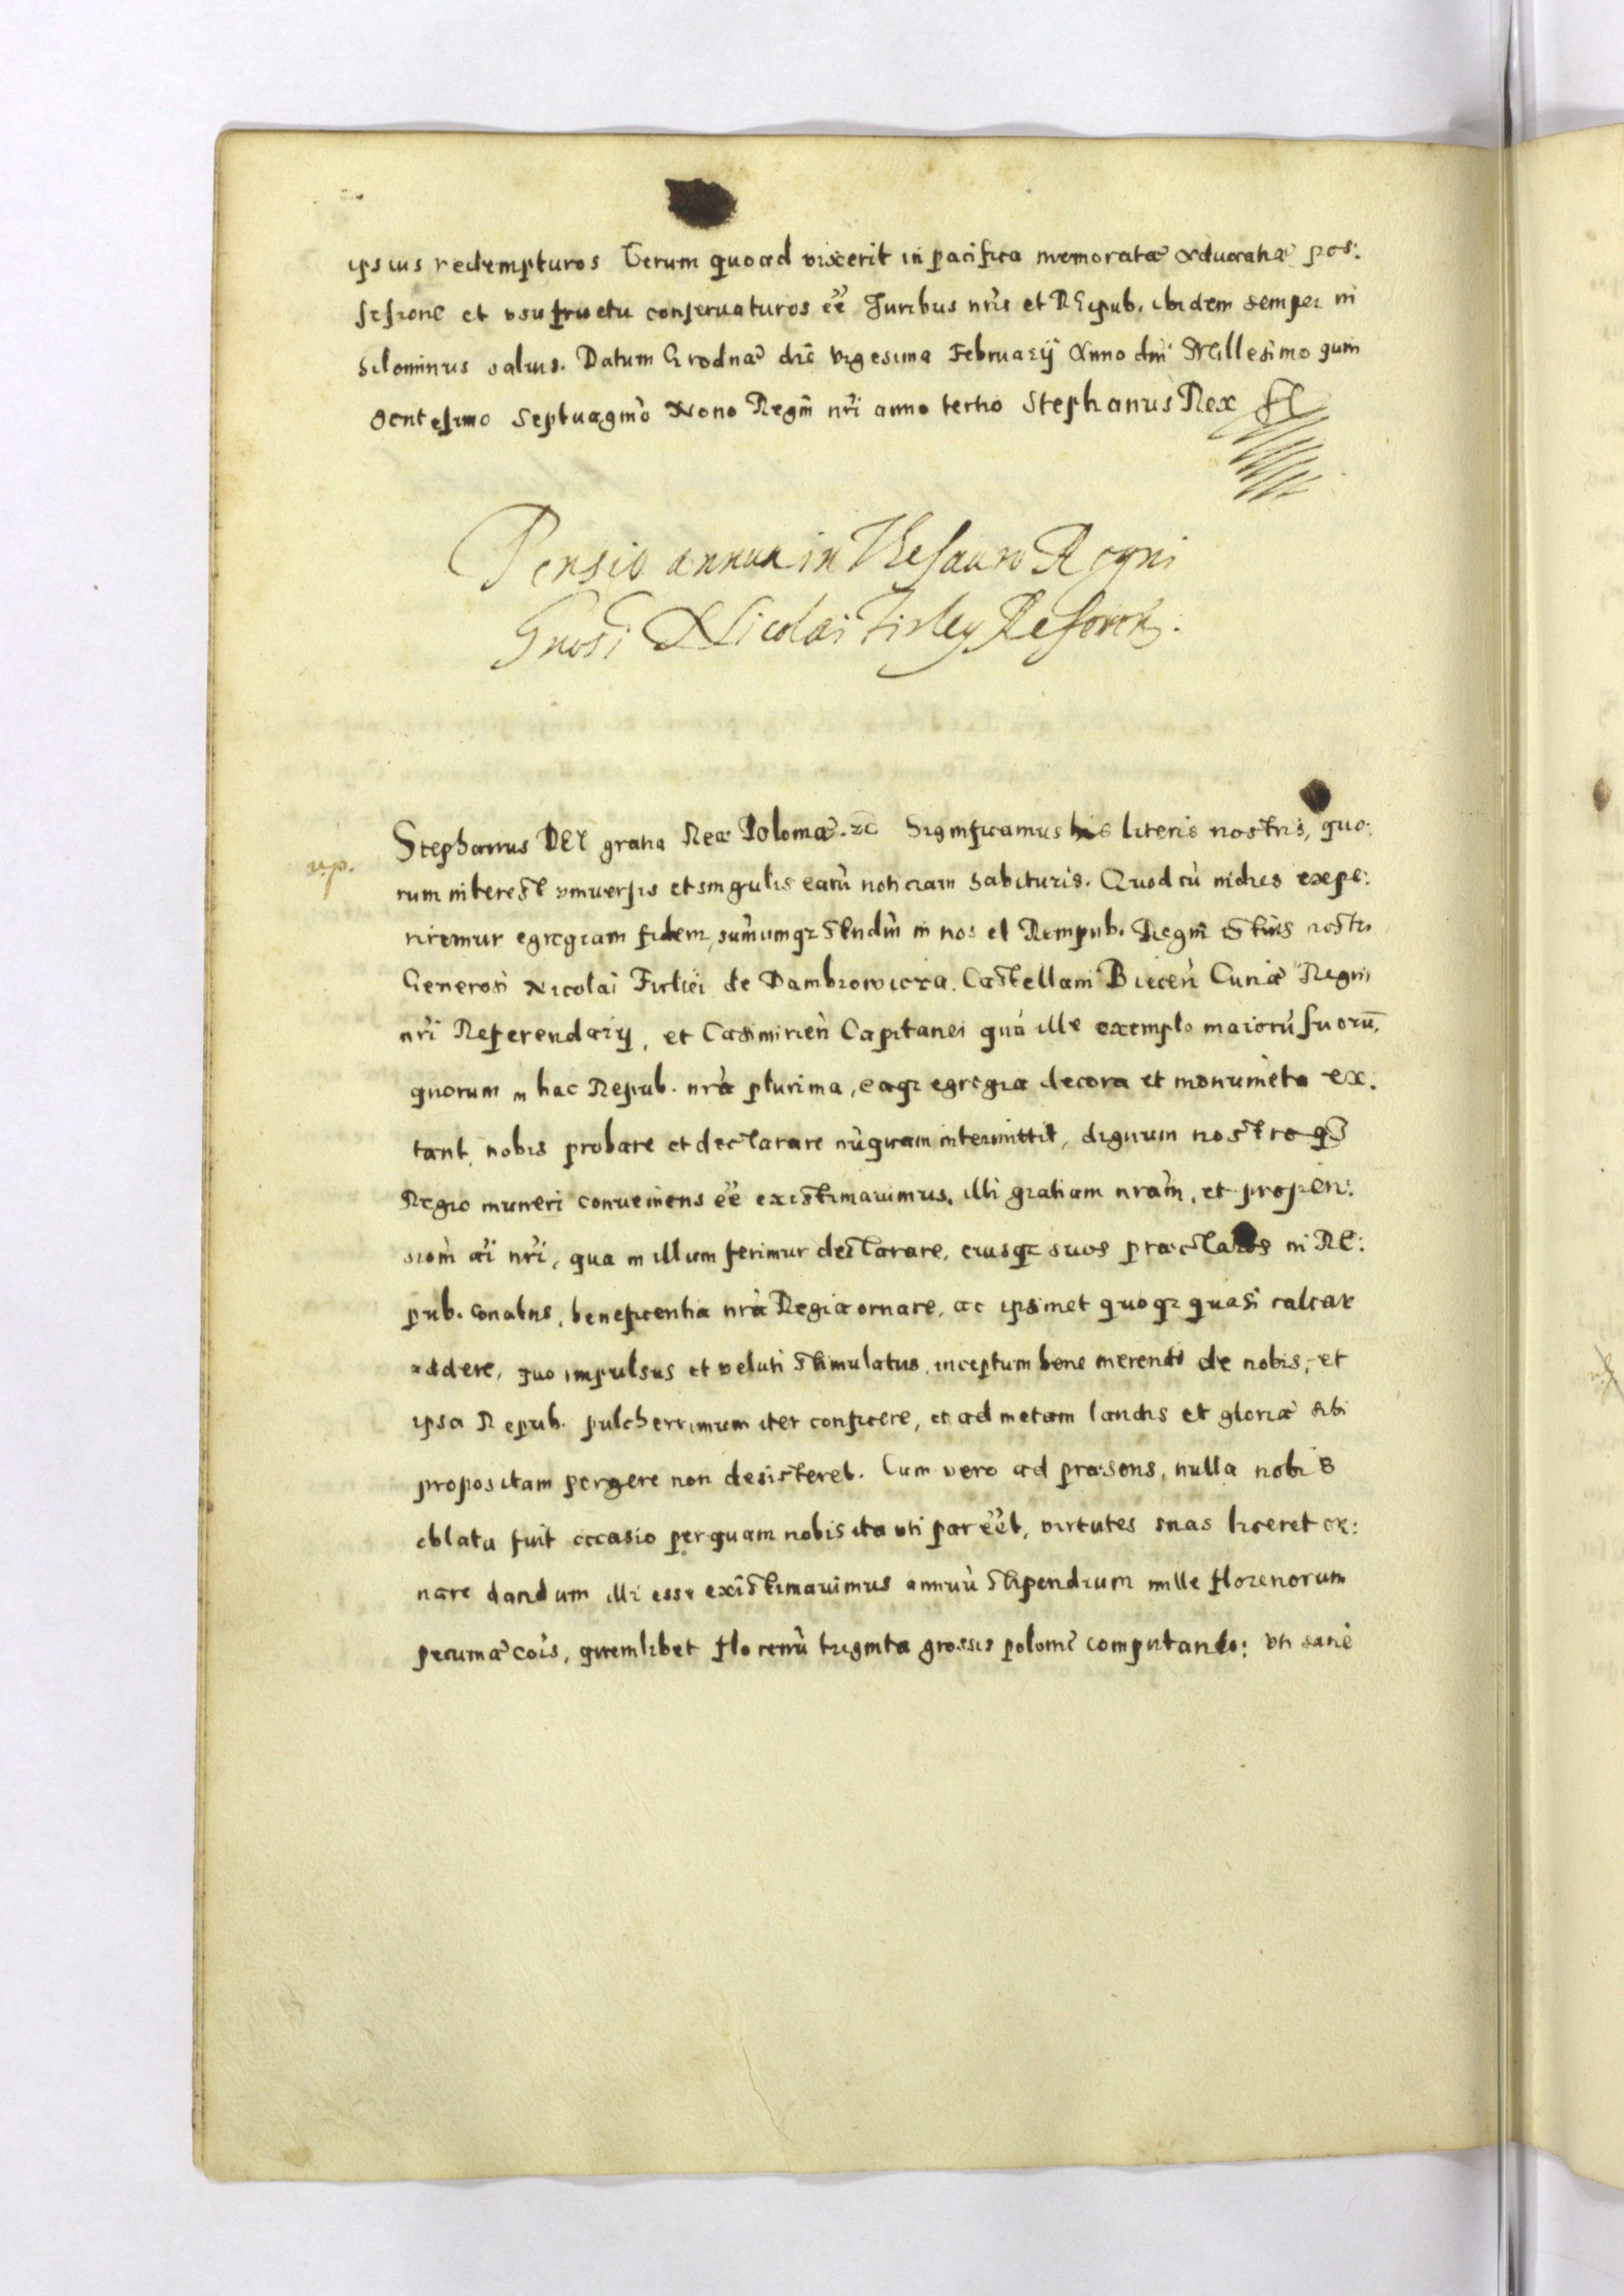 ipsius redempturos Verum quoad vixerit in pacifica memoratæ Aduocatiæ pos:
sessione et vsufructu conseruaturos eẽ Juribus nr̃is et REipub. ibidem semper ni
hilominus saluis. Datum Grodnæ diẽ vigesima Februarij Anno dni Millesimo quin
gentesimo Septuagmò Nono Regni nr̃i anno tertio Stephanus Rex
Pensio annua in Thesauro Regni
Gnosi Nicolai Firley Referen:
Stephanus DEI gratia Rex Poloniæ. zc Significamus his literis nostris, quo:
rum interest vniuersis et singulis earũ noticiam habituris. Quod cũ indies expe:
riremur egregiam fidem, sum̃umqz studiũ in nos et Rempub. Regni istius nostri
Generosi Nicolai Firliei de Dambrowicza. Castellani Biecen̄ Curiæ Regni
nr̃i Referendarij, et Casimirien̄ Capitanei quã ille exemplo maiorũ suorũ,
quorum in hac Repub. nr̃a plurima, eaqz egregia decora et monumẽta ex:
tant, nobis probare et declarare nũquam intermittit, dignum nostroqz
Regio muneri conueniens eẽ existimauimus, illi gratiam nrãm, et propen:
siom̃ ai nr̃i, qua in illum ferimur declarare, eiusqz suos præclaros in RE:
pub. conatus, beneficentia nr̃a Regia ornare, ac ipsimet quoqz quasi calcar
addere, quo impulsus et veluti stimulatus, inceptum bene merendi de nobis, et
ipsa Repub. pulcherrimum iter conficere, et ad metam laudis et gloriæ sibi
propositam pergere non desisteret. Cum vero ad præsens, nulla nobis
oblata fuit occasio per quam nobis ita vti par eẽt, virtutes suas liceret or:
nare dandum illi esse existimauimus annuũ stipendium mille florenorum
pecuniæ cois, quemlibet florenũ triginta grossis poloni computando: vti sanè